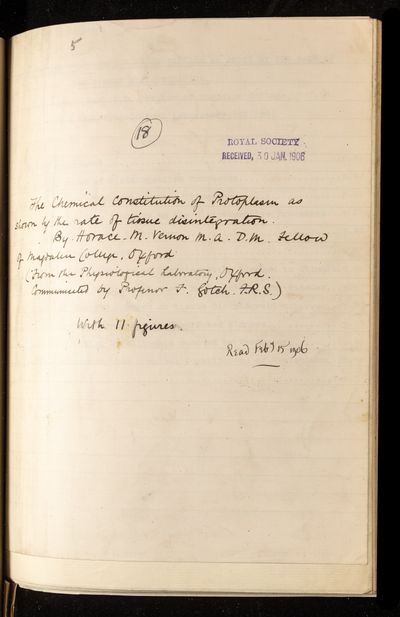 5
18
ROYAL SOCIETY
RECEIVED, 30 JAN. 1906
The Chemical Constitution of Protoplasm as
shown by the rate of tissue disintegration.
By Horace. M. Vernon M.A. D.M. Fellow
of Magdalen College, Oxford
(From the Physiological Laboratory, Oxford.
Communicated by Professor F. Gotch. F.R.S.)
With 11 figures.
Read Feby 15 1906